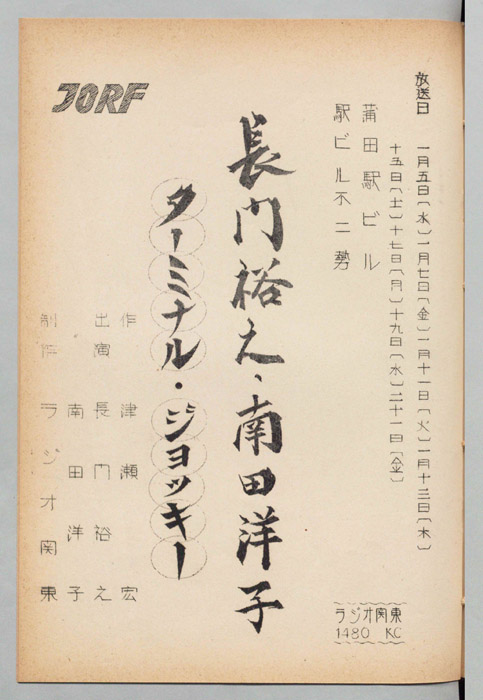 放送日 一月五日〔水〕一月七日〔金〕一月十一日〔火〕一月十三日〔木〕
十五日〔土〕十七日〔月〕十九日〔水〕二十一日〔金〕
蒲田駅ビル
駅ビル不二勢
長門裕之、南田洋子
ターミナル・ジョッキー
JORF
作 津瀬宏
出演 長門裕之
南田洋子
制作 ラジオ関東
ラジオ関東
1480 KC